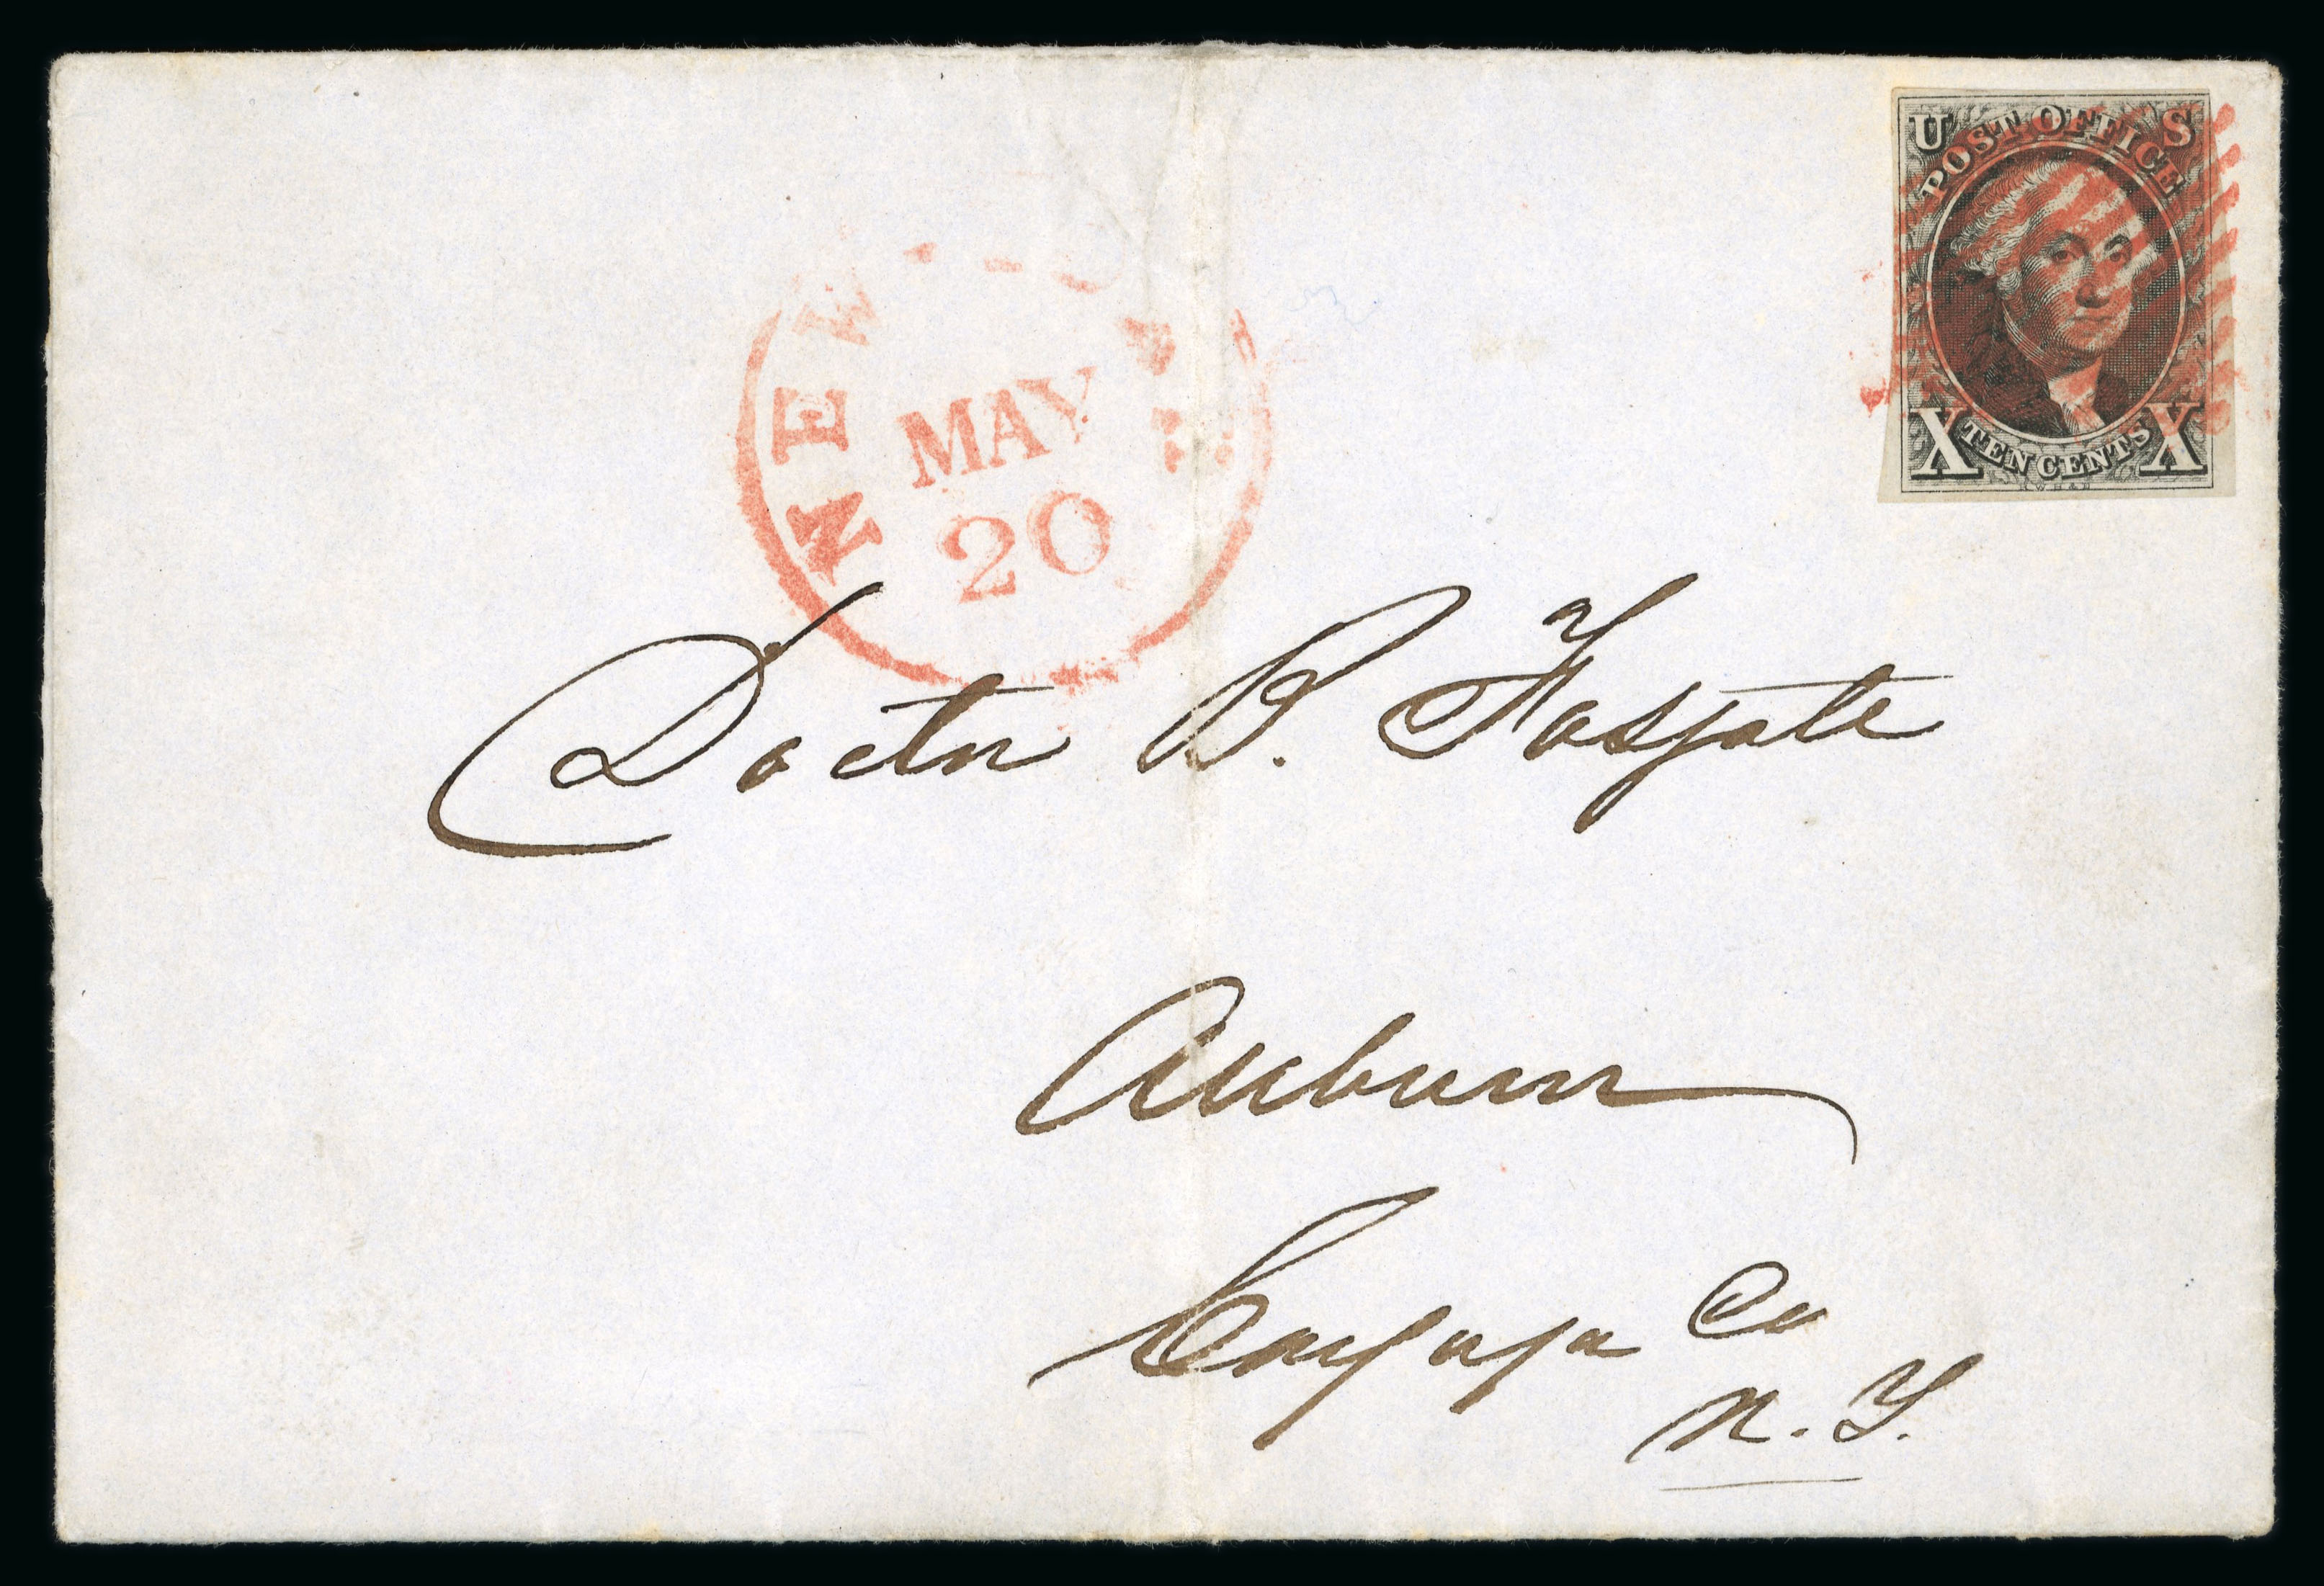 U S
POST OFFICE
X TEN CENTS X
NEW
MAY
20
Doctor B. Fosgate
Auburn
Cayuga Co
N. Y.